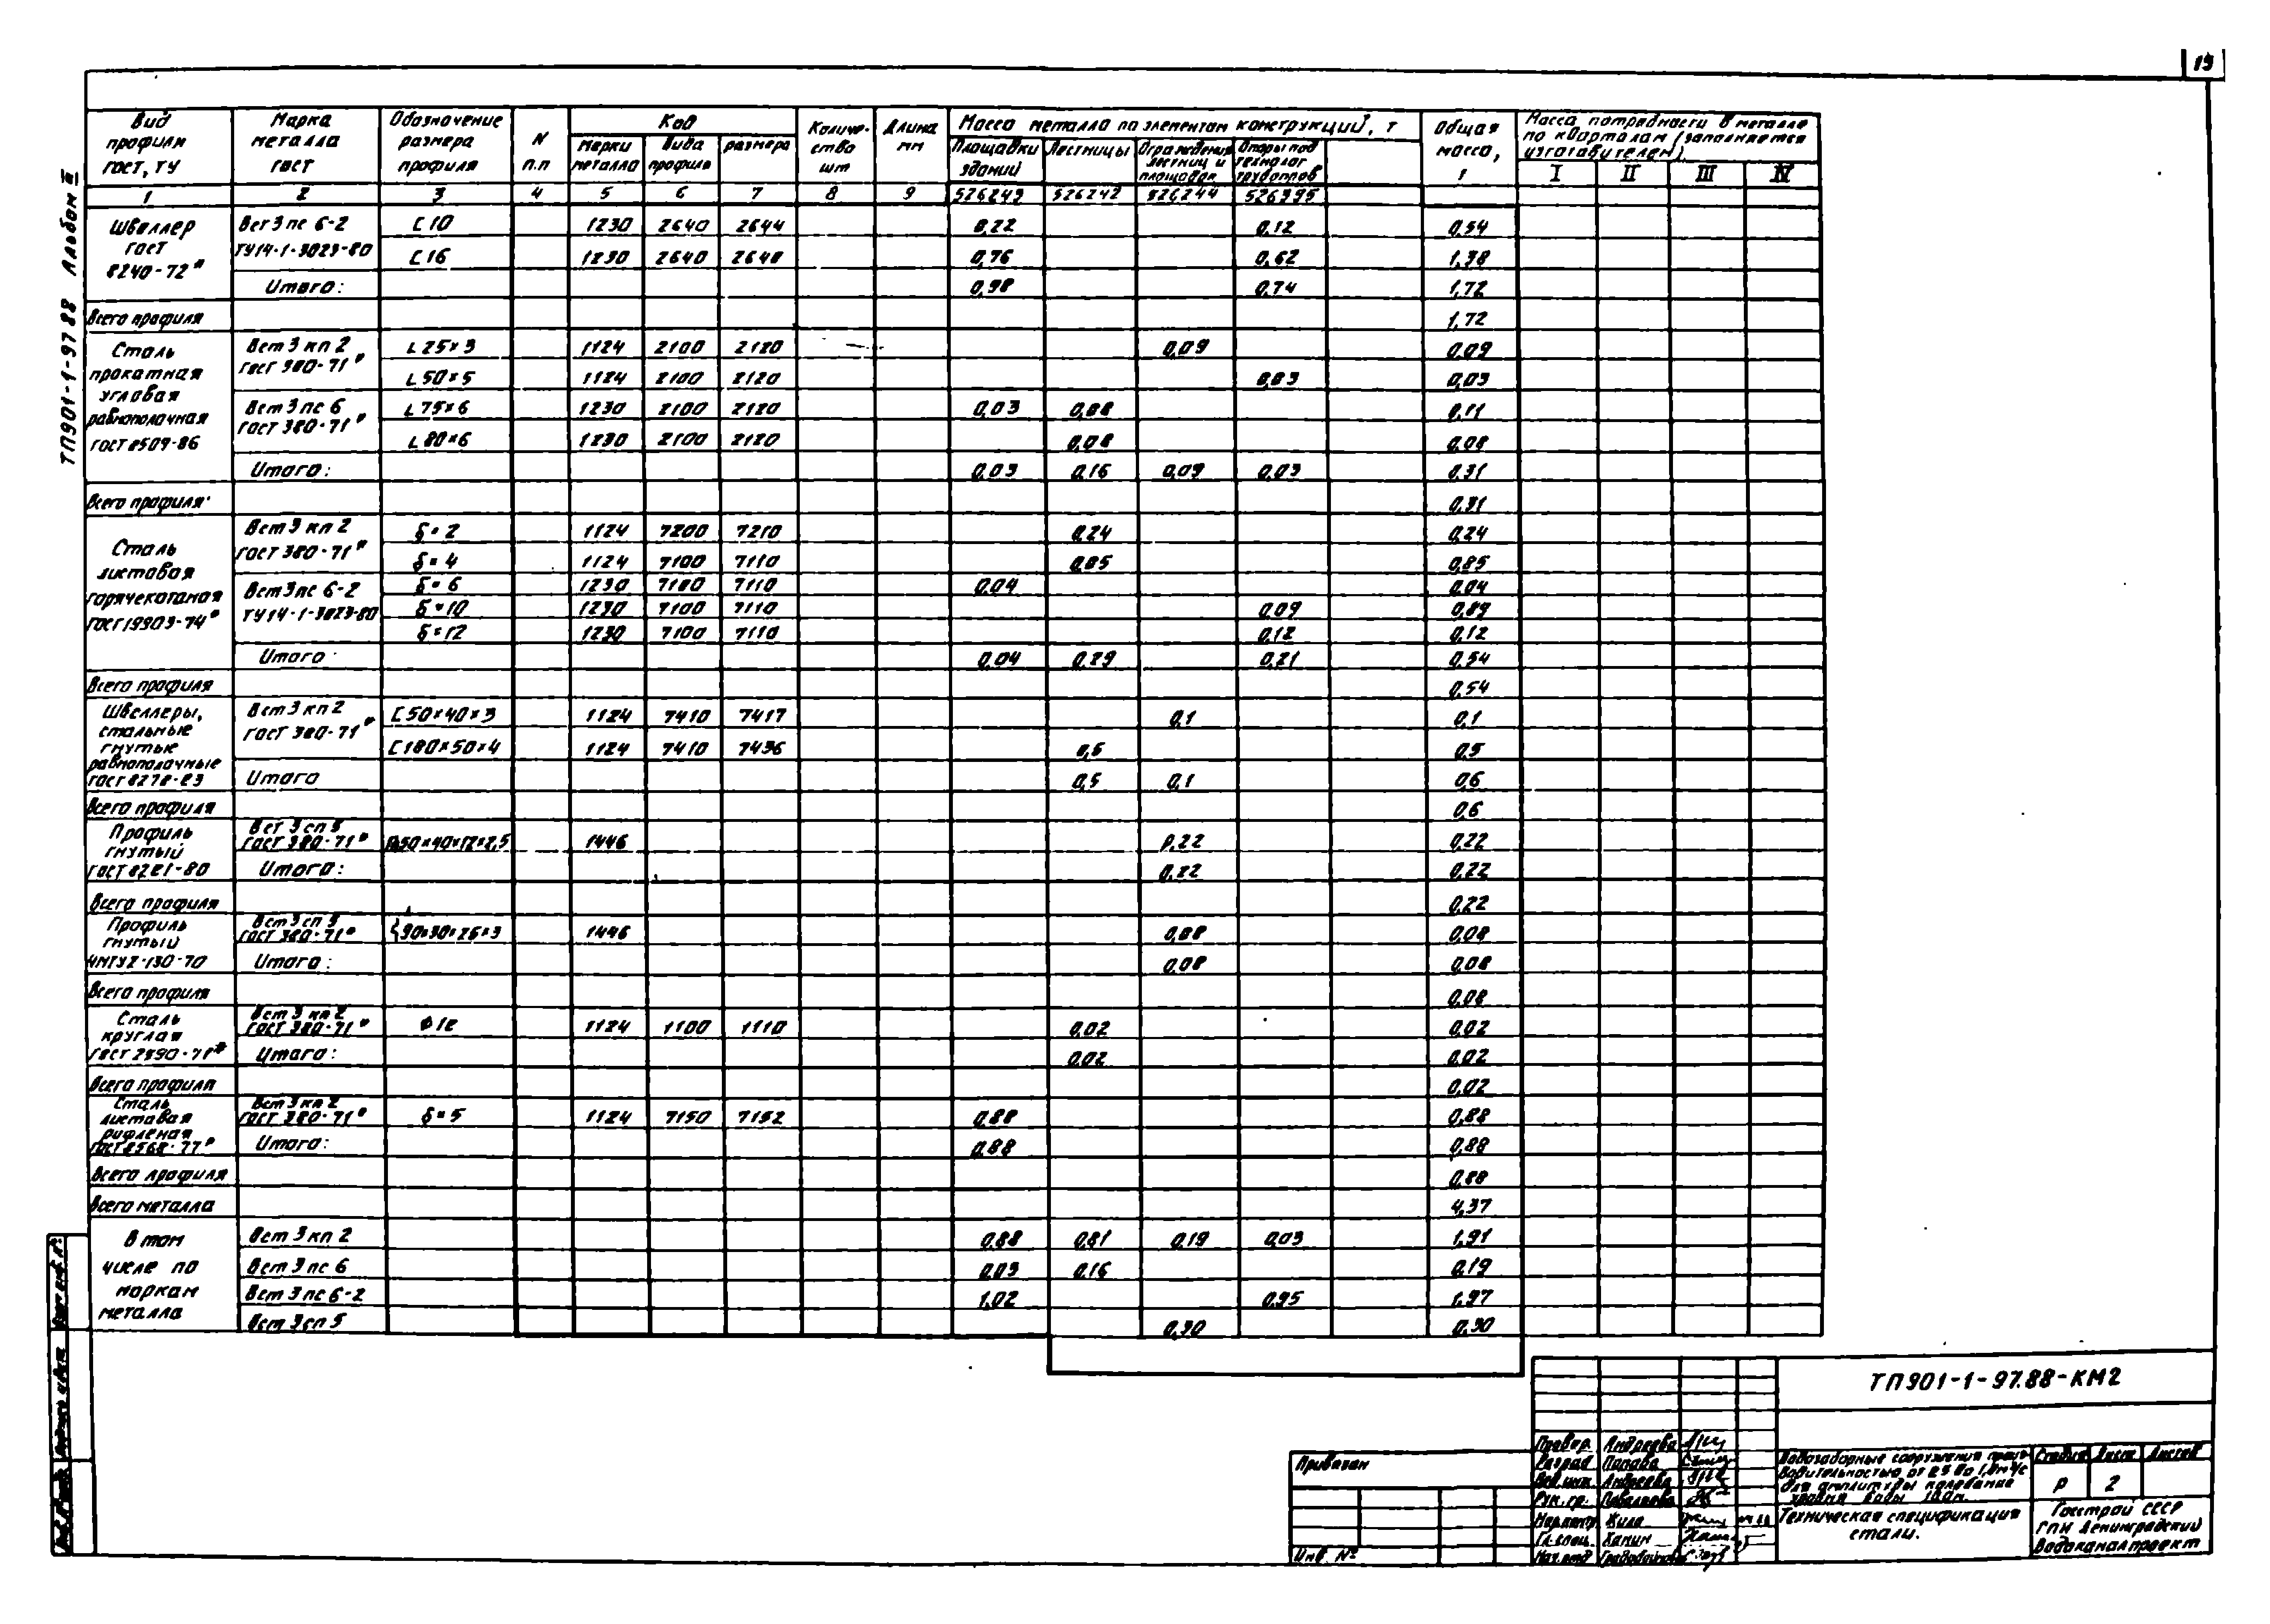 19
ТП901-1-97 88 Альбом III
Вид профиля гост, ту | Марка металла гост | Обозначение размера профиля | N п.п | Код | Количество шт | Длина мм | Масса металла по элементам конструкций, т | Общая масса, т | Масса потребности в металле по кварталам (заполняется изготовителем)
Марки металла | Вида профиля | размера | Площадки зданий | Лестницы | Ограждения лестниц и площадок | Опоры под технолог трубопров | I | II | III | IV
1 | 2 | 3 | 4 | 5 | 6 | 7 | 8 | 9 | 526243 | 526242 | 526244 | 526395
Швеллер гост 8240-72* | Вст 3 пс 6-2 ТУ14-1-3023-80 | С 10 | 1230 | 2640 | 2644 | 0,22 | 0,12 | 0,54
С 16 | 1230 | 2640 | 2648 | 0,76 | 0,62 | 1,38
Итого: | 0,98 | 0,74 | 1,72
Всего профиля | 1,72
Сталь прокатная угловая равнополочная ГОСТ 8509-86 | Вст 3 кп 2 гост 380-71* | L 25×3 | 1124 | 2100 | 2120 | 0,09 | 0,09
L 50×5 | 1124 | 2100 | 2120 | 0,03 | 0,03
Вст 3 пс 6 гост 380-71* | L 75×6 | 1230 | 2100 | 2120 | 0,03 | 0,08 | 0,11
L 80×6 | 1230 | 2100 | 2120 | 0,08 | 0,08
Итого: | 0,03 | 0,16 | 0,09 | 0,03 | 0,31
Всего профиля | 0,31
Сталь листовая горячекатаная гост 19903-74* | Вст 3 кп 2 гост 380-71* | δ=2 | 1124 | 7200 | 7210 | 0,24 | 0,24
δ=4 | 1124 | 7100 | 7110 | 0,05 | 0,05
Вст 3 пс 6-2 ТУ14-1-3023-80 | δ=6 | 1230 | 7100 | 7110 | 0,04 | 0,04
δ=10 | 1230 | 7100 | 7110 | 0,09 | 0,09
δ=12 | 1230 | 7100 | 7110 | 0,12 | 0,12
Итого: | 0,04 | 0,29 | 0,21 | 0,54
Всего профиля | 0,54
Швеллеры, стальные гнутые равнополочные гост 8278-83 | Вст 3 кп 2 гост 380-71* | С 50×40×3 | 1124 | 7410 | 7417 | 0,1 | 0,1
С 180×50×4 | 1124 | 7410 | 7436 | 0,5 | 0,5
Итого | 0,5 | 0,1 | 0,6
Всего профиля | 0,6
Профиль гнутый гост 8281-80 | Вст 3 сп 5 гост 380-71* | 50×40×12×2,5 | 1446 | 0,22 | 0,22
Итого: | 0,22 | 0,22
Всего профиля | 0,22
Профиль гнутый ЧМТУ2-130-70 | Вст 3 сп 5 гост 380-71* | 90×30×26×3 | 1446 | 0,08 | 0,08
Итого: | 0,08 | 0,08
Всего профиля | 0,08
Сталь круглая гост 2590-71* | Вст 3 кп 2 гост 380-71* | Ф 12 | 1124 | 1100 | 1110 | 0,02 | 0,02
Итого: | 0,02 | 0,02
Всего профиля | 0,02
Сталь листовая рифленая гост 8568-77* | Вст 3 кп 2 гост 380-71* | δ=5 | 1124 | 7150 | 7152 | 0,88 | 0,88
Итого: | 0,88 | 0,88
Всего профиля | 0,88
Всего металла | 4,37
В том числе по маркам металла | Вст 3 кп 2 | 0,88 | 0,81 | 0,19 | 0,03 | 1,91
Вст 3 пс 6 | 0,03 | 0,16 | 0,19
Вст 3 пс 6-2 | 1,02 | 0,95 | 1,97
Вст 3 сп 5 | 0,30 | 0,30
ТП901-1-97.88-КМ2
Привязан
Инв. №
Провер. Андреева
Разраб Попова
Вед.инж. Андреева
Рук. гр.
Нормконтр Хила
Гл.спец. Ханин
Нач.отд
Водозаборные сооружения произ-
водительностью от
для амплитуды колебания
уровня воды
Техническая спецификация
стали.
Стадия | Лист | Листов
Р | 2
Госстрой СССР
ГПИ Ленинградский
Водоканалпроект